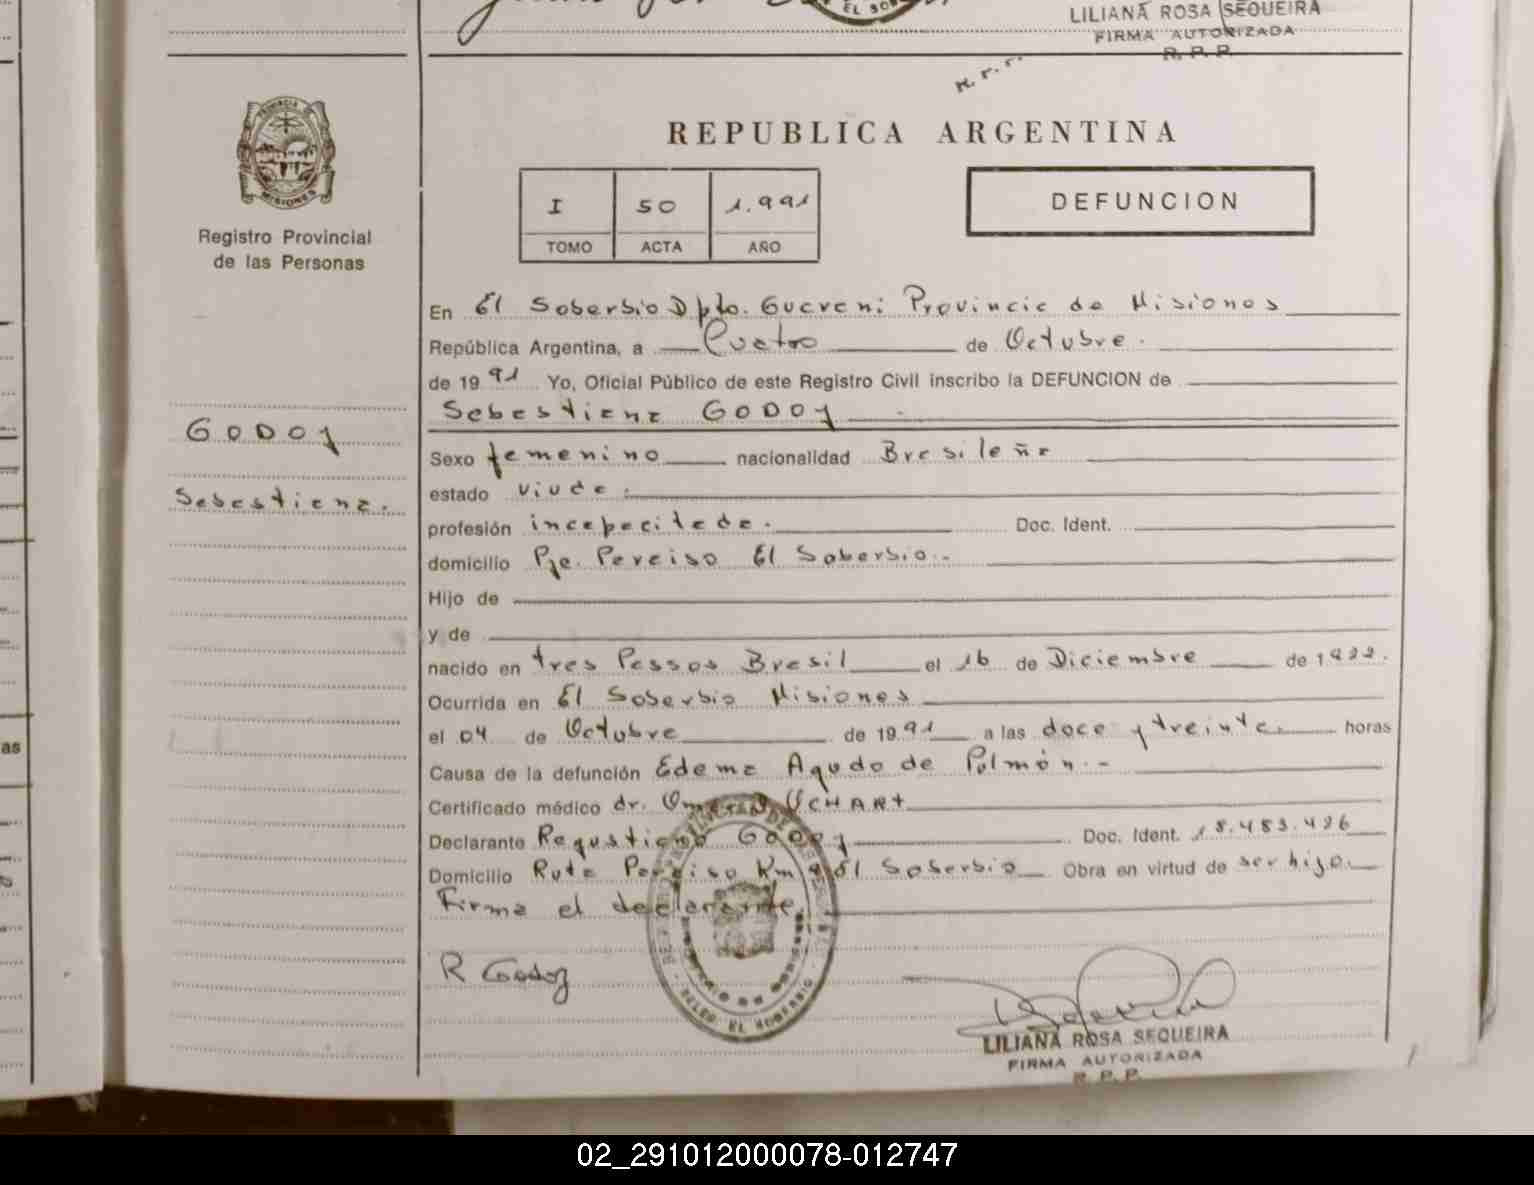 EL SOB
LILIANA ROSA SEQUEIRA
FIRMA AUTORIZADA
R. P. P.
PROVINCIA DE
MISIONES
Registro Provincial
de las Personas
REPUBLICA ARGENTINA
I 50 1.991
TOMO ACTA AÑO
DEFUNCION
En El Soberbio Dpto. Guarani Provincia de Misiones
República Argentina, a Cuatro de Octubre.
de 1991 Yo, Oficial Público de este Registro Civil inscribo la DEFUNCION de
Sebastiana GODOY
GODOY
Sebastiana.
Sexo femenino nacionalidad Brasileña
estado viuda.
profesión incapacitada. Doc. Ident.
domicilio Pje. Paraiso El Soberbio.-
Hijo de
y de
nacido en tres Passos Brasil el 16 de Diciembre de 1922.
Ocurrida en El Soberbio Misiones
el 04 de Octubre de 1991 a las doce y treinta horas
Causa de la defunción Edema Agudo de Pulmón.-
Certificado médico dr. UCHART
Declarante Godoy Doc. Ident. 18.483.426
Domicilio Ruta Paraiso Km 9 El Soberbio Obra en virtud de ser hijo.
Firma el declarante.
R Godoy
EL SOBERBIO
LILIANA ROSA SEQUEIRA
FIRMA AUTORIZADA
R. P. P.
02_291012000078-012747